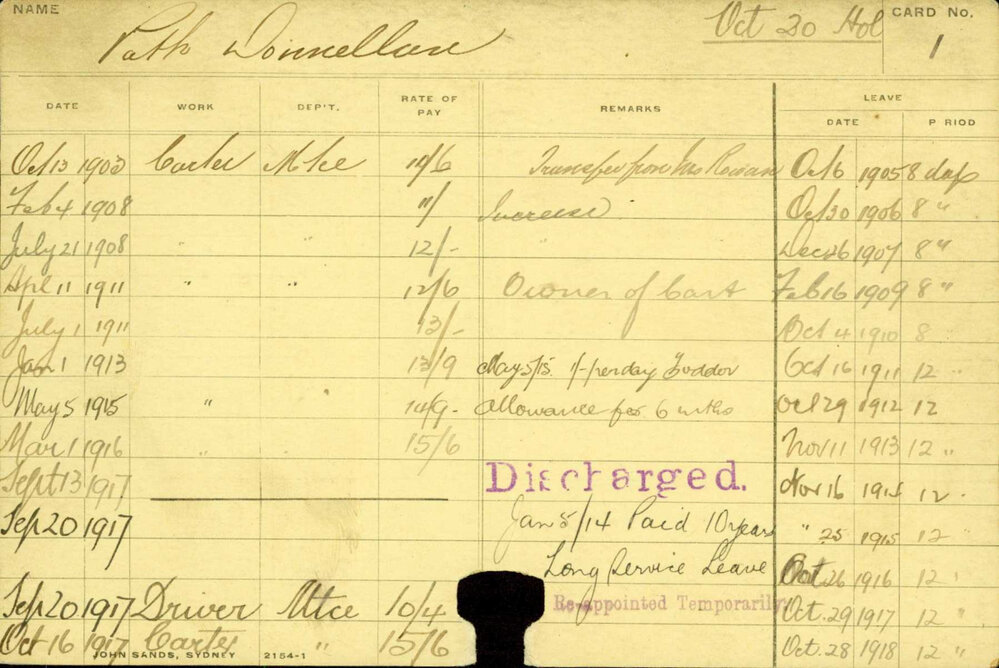 NAME Path Donnellan Oct 30 Hol CARD No. 1
DATE WORK DEP'T. RATE OF PAY REMARKS LEAVE
DATE P RIOD
Oct 13 1903 Carter Mtce 10/6 Transfer from Oct 6 1905 8 days
Feb 4 1908 11/ Increase Oct 30 1906 8 "
July 21 1908 " " 12/- Dec 26 1907 8 "
Apl 11 1911 " " 12/6 Owner of Cart Feb 16 1909 8 "
July 1 1911 13/- Oct 4 1910 8 "
Jan 1 1913 13/9 May 5/15 1/- per day Foddor Oct 16 1911 12 "
May 5 1915 " " 14/9 allowance for 6 mths Oct 29 1912 12
Mar 1 1916 " " 15/6 Nov 11 1913 12 "
Sept 13 1917 Discharged. Nov 16 1914 12 "
Sep 20 1917 Jan 5/14 Paid 10 years " 25 1915 12 "
Long Service Leave Oct 26 1916 12 "
Sep 20 1917 Driver Mtce 10/4 Re-appointed Temporarily. Oct. 29 1917 12 "
Oct 16 1917 Carter " 15/6 Oct. 28 1918 12 "
JOHN SANDS, SYDNEY 2154-1